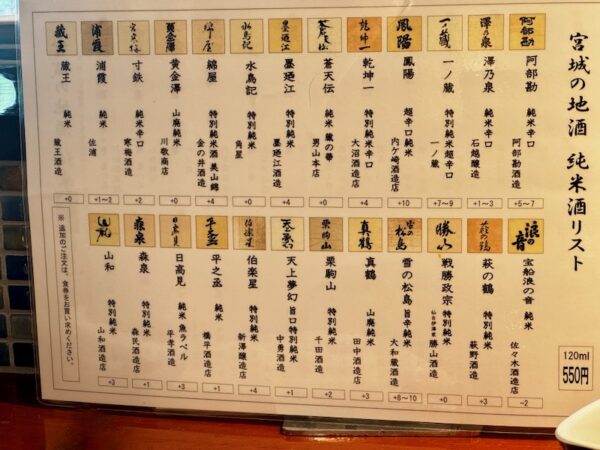 宮城の地酒 純米酒リスト
120ml
550円
阿部勘
阿部勘 純米辛口
阿部勘酒造
+5~7
澤乃泉
澤乃泉 特別純米
石越醸造
+1~3
一ノ蔵
一ノ蔵 特別純米超辛口
一ノ蔵
+7~9
鳳陽
鳳陽 超辛口純米
内ケ崎酒造店
+10
乾坤一
乾坤一 特別純米辛口
大沼酒造店
+4
蒼天伝
蒼天伝 純米 蔵の華
男山本店
+0
墨廼江
墨廼江 特別純米
墨廼江酒造
+4
水鳥記
水鳥記 特別純米
角星
+0
綿屋
綿屋 特別純米酒 美山錦
金の井酒造
+4
黄金澤
黄金澤 山廃純米
川敬商店
+0
寸鉄 純米辛口
寒梅酒造
+2
浦霞
浦霞 純米
佐浦
+1~2
蔵王
蔵王 純米
蔵王酒造
+0
浪の音
宝船浪の音 純米
佐々木酒造店
-2
萩の鶴
萩の鶴 特別純米
萩野酒造
+3
勝山
戦勝政宗 特別純米
勝山酒造
+0
雪の松島
雪の松島 旨辛純米
大和蔵酒造
+8~10
真鶴
真鶴 山廃純米
田中酒造店
+3
栗駒山
栗駒山 特別純米
千田酒造
+2
天上夢幻 旨口特別純米
中勇酒造
+1
伯楽星
伯楽星 特別純米
新澤醸造店
+4
平之丞 特別純米
橋平酒造店
+4
日高見
日高見 純米 魚ラベル
平孝酒造
+3
森泉
森泉 特別純米
森民酒造店
+1
山和
山和 特別純米
山和酒造店
+3
※ 追加のご注文は、食券をお買い求めください。